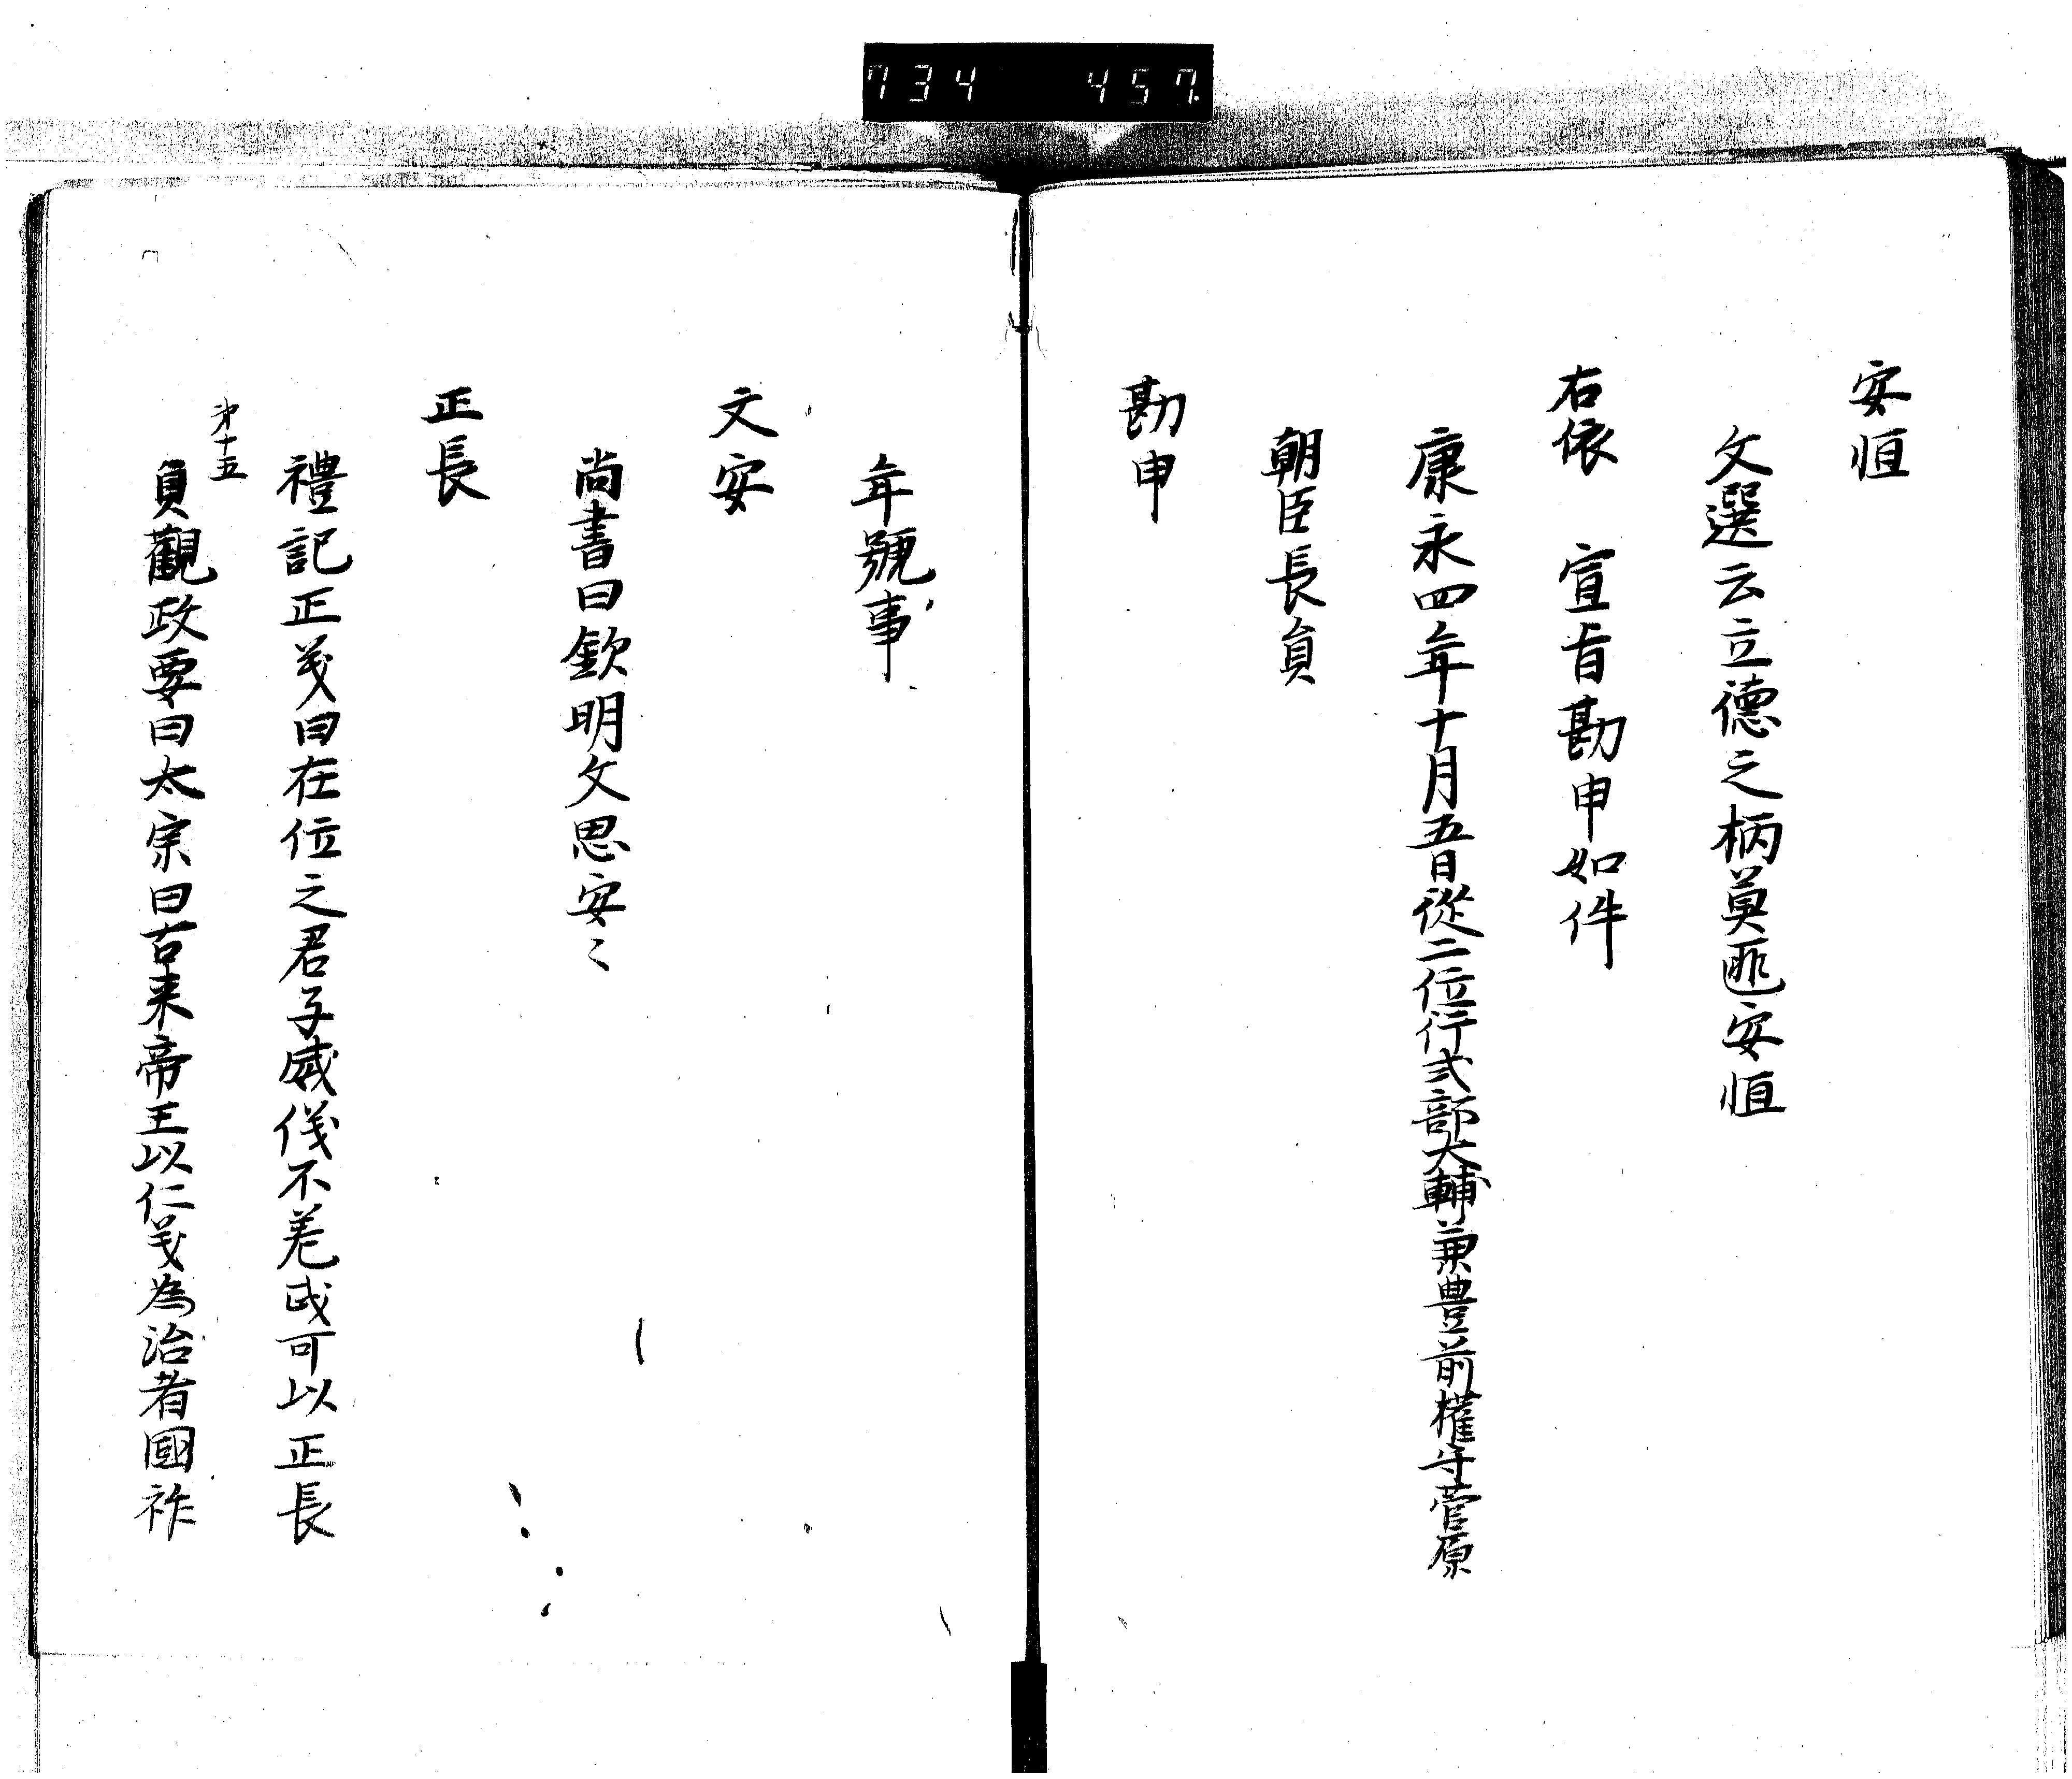 734 457
安恒
文選云立德之柄莫匪安恒
右依 宣旨勘申如件
康永四年十月五日從二位行式部大輔兼豊前權守菅原
朝臣長員
勘申
年號事
文安
尚書曰欽明文思安〻
正長
禮記正義曰在位之君子威儀不差忒可以正長
第十五
貞觀政要曰太宗曰古来帝王以仁義為治者國祚